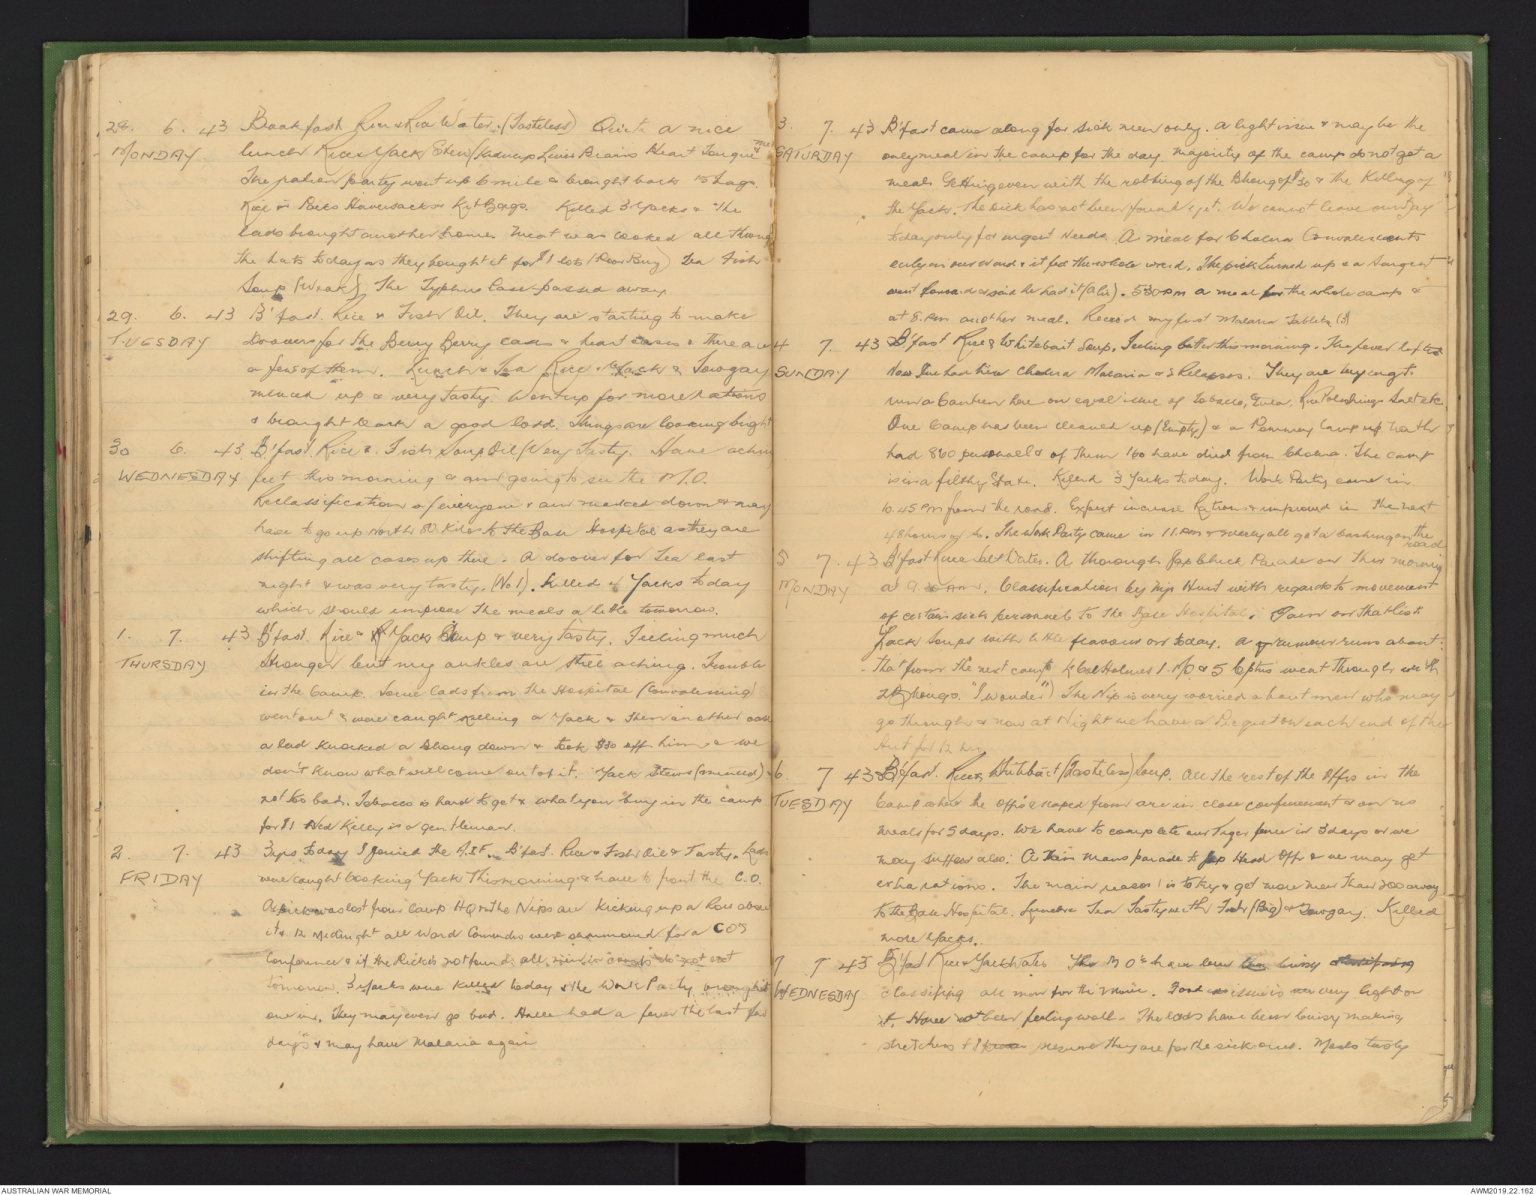 28. 6. 43 Breakfast Rice & Rice Water. (Tasteless) Quite a nice
MONDAY lunch Rice & Yack Stew Liver Brains Heart Tongue &
The ration party went up 6 mile & brought back 15 bags
Rice in Packs Haversacks & Kit Bags. Killed 3 Yacks & the
lads brought another home. Meat was cooked all through
the huts today as they bought it for $1 lots Tea Fish
Soup (Weak). The Typhus Case passed away
29. 6. 43 B'fast. Rice & Fish Oil. They are starting to make
TUESDAY Doovers for the Berry Berry cases & heart cases & there are
a few of them. Lunch & Tea Rice & Yack & Towgay
minced up & very tasty. Went up for more rations
& brought back a good load. Things are looking bright
30 6. 43 B'fast. Rice & Fish Soup Oil (Very Tasty. Have aching
WEDNESDAY feet this morning & am going to see the M.O.
Reclassification of everyone & am marked down & may
have to go up north 80 Kilo to the Base Hospital as they are
shifting all cases up there. A doover for Tea last
night & was very tasty. (No 1). Killed Yacks today
which should improve the meals a little tomorrow.
1. 7. 43 B'fast. Rice & Yack Soup & very tasty. Feeling much
THURSDAY stronger but my ankles are still aching. Trouble
in the Camp. Some lads from the Hospital (Convalescing)
went out & were caught killing a Yack & then in other case
a lad knocked a Bhong down & took $30 off him & we
don't know what will come out of it. Yack Stews (minced)
not too bad. Tobacco is hard to get & what you buy in the camp
for $1 Ned Kelly is a gentleman.
2. 7. 43 3 yrs today I joined the A.I.F. B'fast. Rice & Fish Oil & Tasty. Lads
FRIDAY were caught cooking Yack this morning & have to front the C.O.
A pick was lost from Camp HQ & the Nips are kicking up a row about
it & 12 Midnight all Ward Commdrs were summoned for a CO's
Conference & if the Pick is not found all
tomorrow. 3 Yacks were killed today & the Work Party brought
one in. They may even go bad. Have had a fever the last few
days & may have Malaria again
3. 7. 43 B'fast came along for sick men only. A light issue & may be the
SATURDAY only meal in the camp for the day. Majority of the camp do not get a
meal. Getting even with the robbing of the Bhong of $30 & the Killing of
the Yack. The pick has not been found yet. We cannot leave our Bay
today only for urgent needs. A meal for Cholera Convalescents
early in our ward & it fed the whole ward. The pick turned up & a Sargent
went forward & said he had it. 530 pm a meal for the whole camp &
at 8. pm another meal. Received my first Malaria Tablets (3)
4 7. 43 B'fast Rice & Whitebait Soup. Feeling better this morning. The fever left
SUNDAY Now I've had Cholera Malaria & 3 Relapses. They are trying to
run a Canteen here on equal issue of Tobacco, Rice Polishings Salt etc.
One Camp has been cleaned up (Empty) & a Pommy Camp up north
had 860 personnel & of them 160 have died from Cholera. The camp
is in a filthy state. Killed 3 Yacks today. Work Party came in
10.45 pm from the road. Expect increase Rations & improved in the next
48 hours. The Work Party came in 11. pm & nearly all got a bashing on the
road
5 7. 43 B'fast Rice & Salt Water. A thorough Jap check Parade on this morning
MONDAY at 9. am. Classification by Nip with regards to movement
of certain sick personnel to the Base Hospital. I am on that list
Yack Soups with little flavour on today. A rumour runs about
that from the next camp Lt Col Holmes 1. MO & 5 Cptns went through with
2 Bhongs. "I wonder") The Nip is very worried about men who may
go through & now at Night we have a Picquet on each end of the
hut for 12 hrs
6. 7 43 B'fast. Rice & Whitebait (Tasteless) Soup. All the rest of the Offrs in the
TUESDAY Camp where the Offrs escaped from are in close confinement & on no
meals for 5 days. We have to complete our Tiger fence in 3 days or we
may suffer also. A Thin mans parade to Jap Head Offr & we may get
extra rations. The main reason is to try & get more men than 200 away
to the Base Hospital. Lunch & Tea Tasty with Fish (Big) & Towgay. Killed
more Yacks.
7 7 43 B'fast Rice & Yack Water The M O's have been busy
WEDNESDAY classifying all men for the move. Food issue is very light on
it. Have not been feeling well. The lads have been busy making
stretchers & I presume they are for the sick ones. Meals tasty
AUSTRALIAN WAR MEMORIAL
AWM2019.22.162